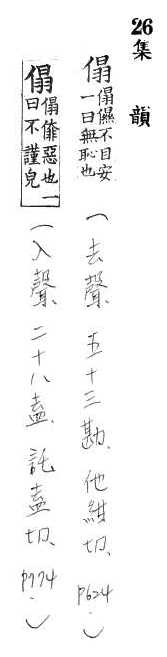 26集韻
傝 傝㒎不自安
一曰無恥也
(去聲、五十三勘、他紺切、p624.)
傝 傝𠎷惡也一
曰不謹皃
(入聲、二十八盍、託盍切、p774.)